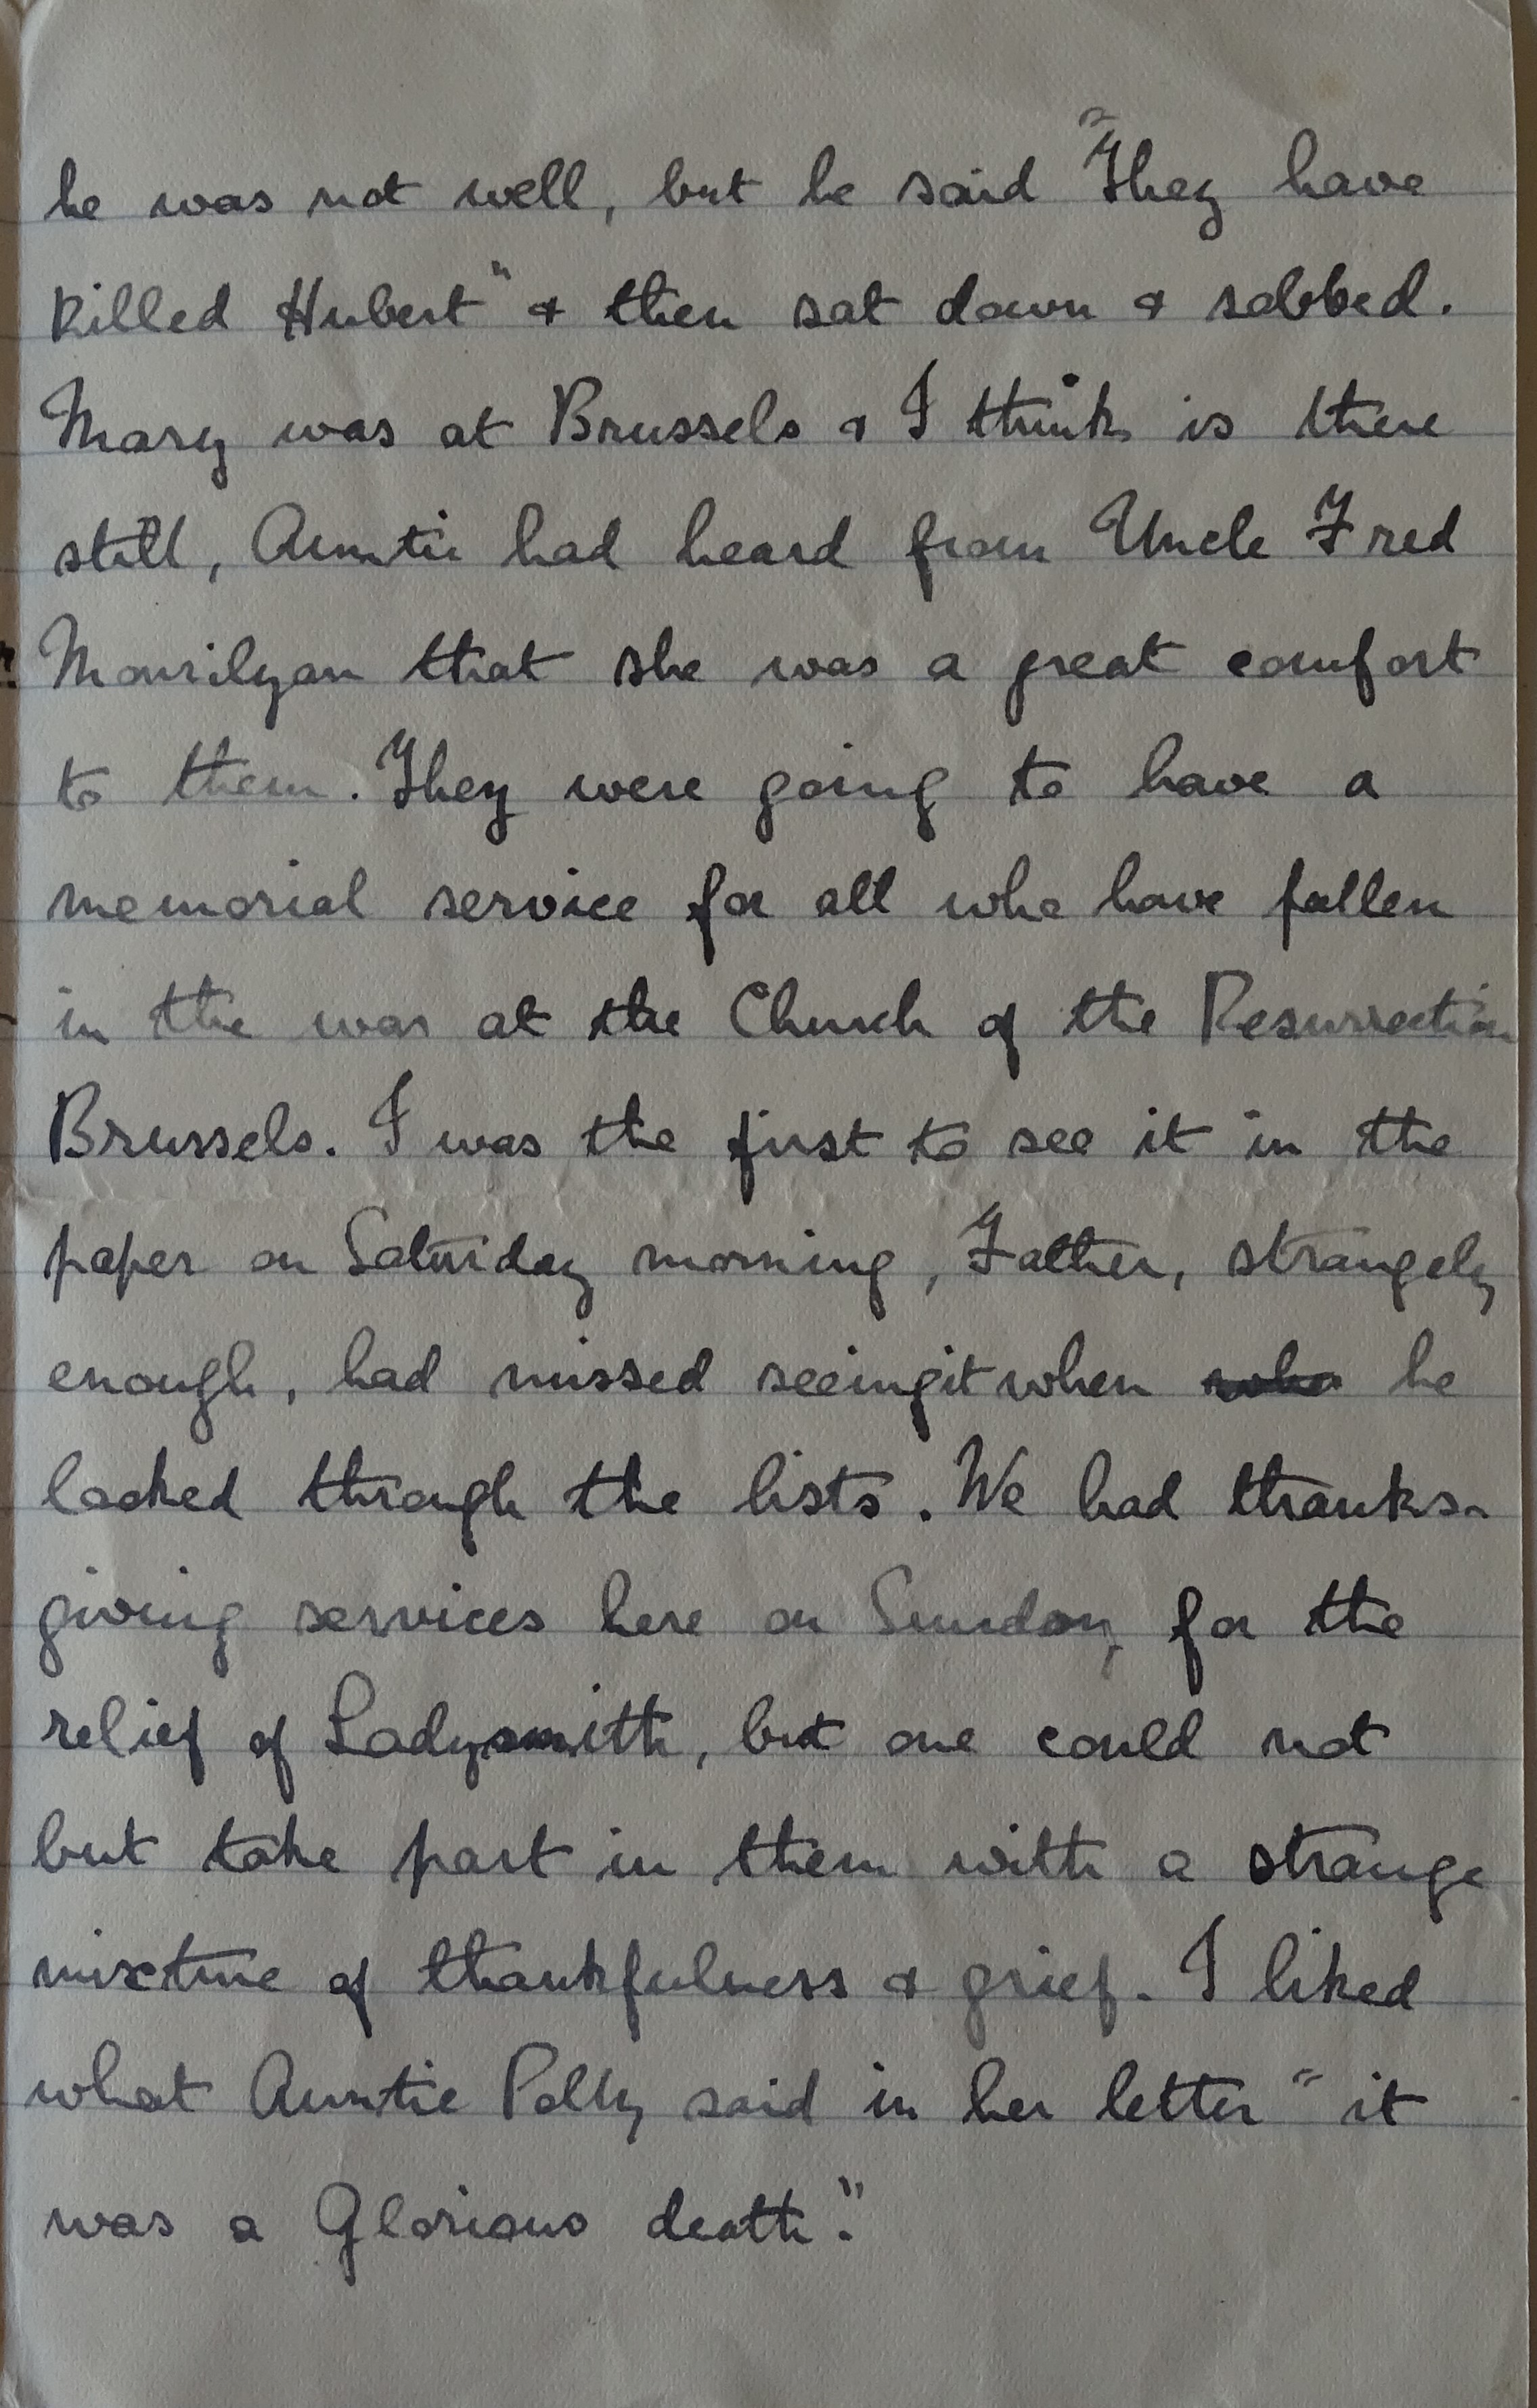 he was not well, but he said "They have
killed Hubert" & then sat down & sobbed.
Mary was at Brussels & I think is there
still, Auntie had heard from Uncle Fred
Mourilyan that she was a great comfort
to them. They were going to have a
memorial service for all who have fallen
in the war at the Church of the Resurrection
Brussels. I was the first to see it in the
paper on Saturday morning, Father, strangely
enough, had missed seeing it when who he
looked through the lists. We had thanks-
giving services here on Sunday for the
relief of Ladysmith, but one could not
but take part in them with a strange
mixture of thankfulness & grief. I liked
what Auntie Polly said in her letter "it
was a Glorious death."